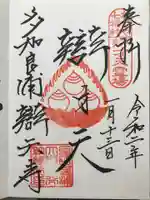 奉拝
令和二年
一月十三日
辯才天
多加良浦辯天寺